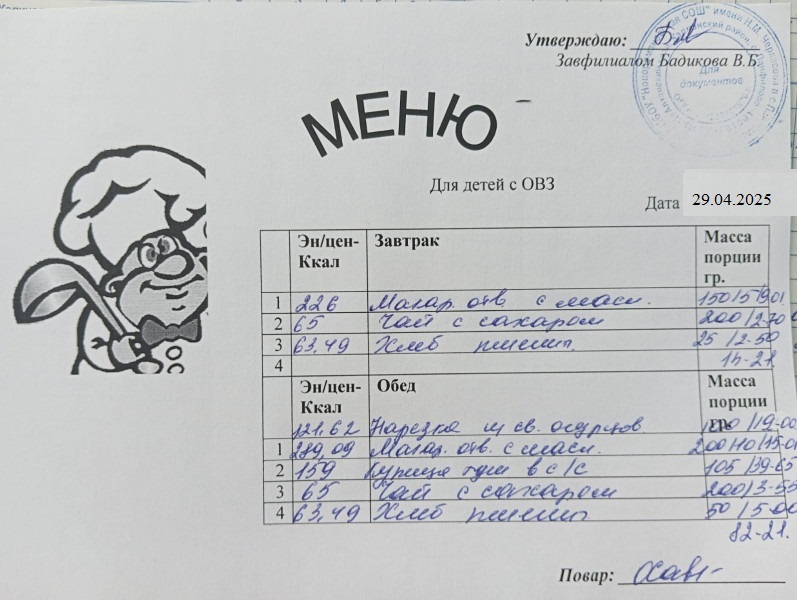 Утверждаю:
Завфилиалом Бадикова В.Б.
Для документов
МЕНЮ
Для детей с ОВЗ
Дата 29.04.2025
Эн/цен-Ккал Завтрак Масса порции гр.
1 226 Макар. отв с масл. 150/5/9.01
2 65 Чай с сахаром 200/2-70
3 63,49 Хлеб пшенич 25/2-50
4 14-21
Эн/цен-Ккал Обед Масса порции гр.
121,62 Нарезка из св. огурцов 100/19-00
1 289,09 Макар. отв. с масл. 200/10/15-01
2 159 Курица туш в с/с 105/39-65
3 65 Чай с сахаром 200/3-55
4 63,49 Хлеб пшенич 50/5-00
82-21.
Повар: